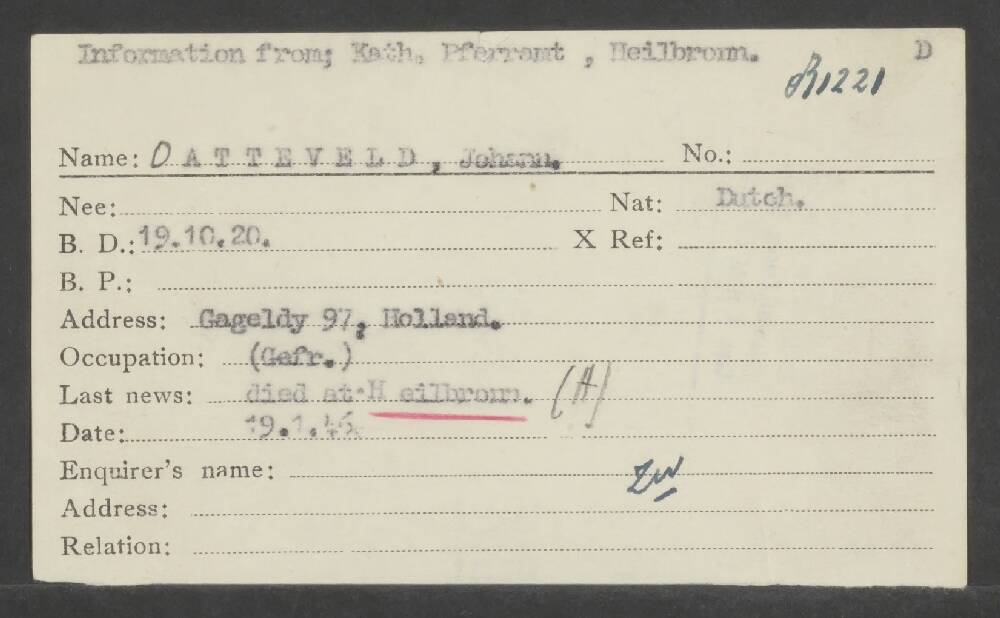 Information from; Kath. Pferramt , Heilbronn. D
R1221
Name: O A T T E V E L D , Johann. No.:
Nee: Nat: Dutch.
B. D.: 19.10.20. X Ref:
B. P.:
Address: Gageldy 97, Holland.
Occupation: (Gefr.)
Last news: died at H eilbronn. (A)
Date: 19.1.46
Enquirer's name:
ZW
Address:
Relation: